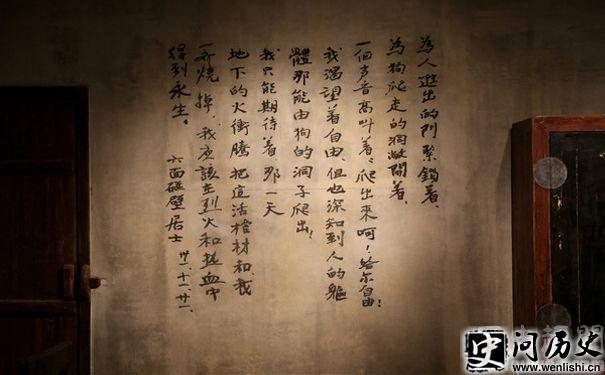 為人進出的门緊鎖着、
為狗爬走的洞敞開着、
一個声音高叫着、爬出來呵！给尔自由！
我渴望着自由、但也深知到人的軀
體那能由狗的洞子爬出！
我只能期待着、那一天
地下的火衝騰把這活棺材和我
一齐燒掉、我應該在烈火和热血中
得到永生。
六面碰壁居士
卅一、十一、廿一、
史问历史
www.wenlishi.cn